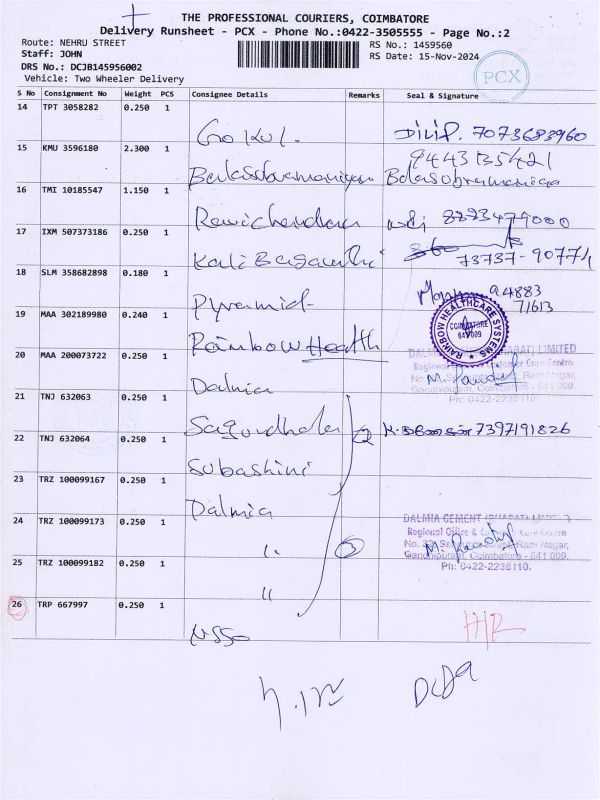 THE PROFESSIONAL COURIERS, COIMBATORE
Delivery Runsheet - PCX - Phone No.:0422-3505555 - Page No.:2
Route: NEHRU STREET
RS No.: 1459560
Staff: JOHN
RS Date: 15-Nov-2024
DRS No.: DCJB145956002
Vehicle: Two Wheeler Delivery
PCX
S No Consignment No Weight PCS Consignee Details Remarks Seal & Signature
14 TPT 3058282 0.250 1
Gokul. Dilip. 7073683960
15 KMU 3596180 2.300 1
9443135421
Balasubramaniyan Balasubramaniyan
16 TMI 10185547 1.150 1
Ravichandran 8273479000
17 IXM 507373186 0.250 1
Kali Bagavathi 73737-90774
18 SLM 358682898 0.180 1
Pyramid 94883
71613
19 MAA 302189980 0.240 1
Rainbow Health
RAINBOW HEALTHCARE SYSTEMS
COIMBATORE
641 009
20 MAA 200073722 0.250 1
Dalmia
DALMIA CEMENT (BHARAT) LIMITED
Regional Office & Customer Care Centre
Ram Nagar,
Gandhipuram, Coimbatore - 641 009.
Ph: 0422-2238110.
21 TNJ 632063 0.250 1
7397191826
22 TNJ 632064 0.250 1
Subashini
23 TRZ 100099167 0.250 1
Dalmia
24 TRZ 100099173 0.250 1
"
DALMIA CEMENT (BHARAT) LIMITED
Regional Office & Customer Care Centre
Ram Nagar,
Gandhipuram, Coimbatore - 641 009.
Ph: 0422-2238110.
25 TRZ 100099182 0.250 1
"
26 TRP 667997 0.250 1
NSSO